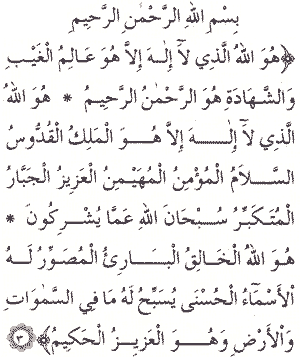 بِسْمِ اللهِ الرَّحْمٰنِ الرَّحِيمِ
﴿هُوَ اللهُ الَّذِي لَآ إِلٰهَ إِلَّا هُوَ عَالِمُ الْغَيْبِ
وَالشَّهَادَةِ هُوَ الرَّحْمٰنُ الرَّحِيمُ * هُوَ اللهُ
الَّذِي لَآ إِلٰهَ إِلَّا هُوَ الْمَلِكُ الْقُدُّوسُ
السَّلَامُ الْمُؤْمِنُ الْمُهَيْمِنُ الْعَزِيزُ الْجَبَّارُ
الْمُتَكَبِّرُ سُبْحَانَ اللهِ عَمَّا يُشْرِكُونَ *
هُوَ اللهُ الْخَالِقُ الْبَارِئُ الْمُصَوِّرُ لَهُ
الْأَسْمَآءُ الْحُسْنَى يُسَبِّحُ لَهُ مَا فِي السَّمٰوَاتِ
وَالْأَرْضِ وَهُوَ الْعَزِيزُ الْحَكِيمُ﴾ ٣